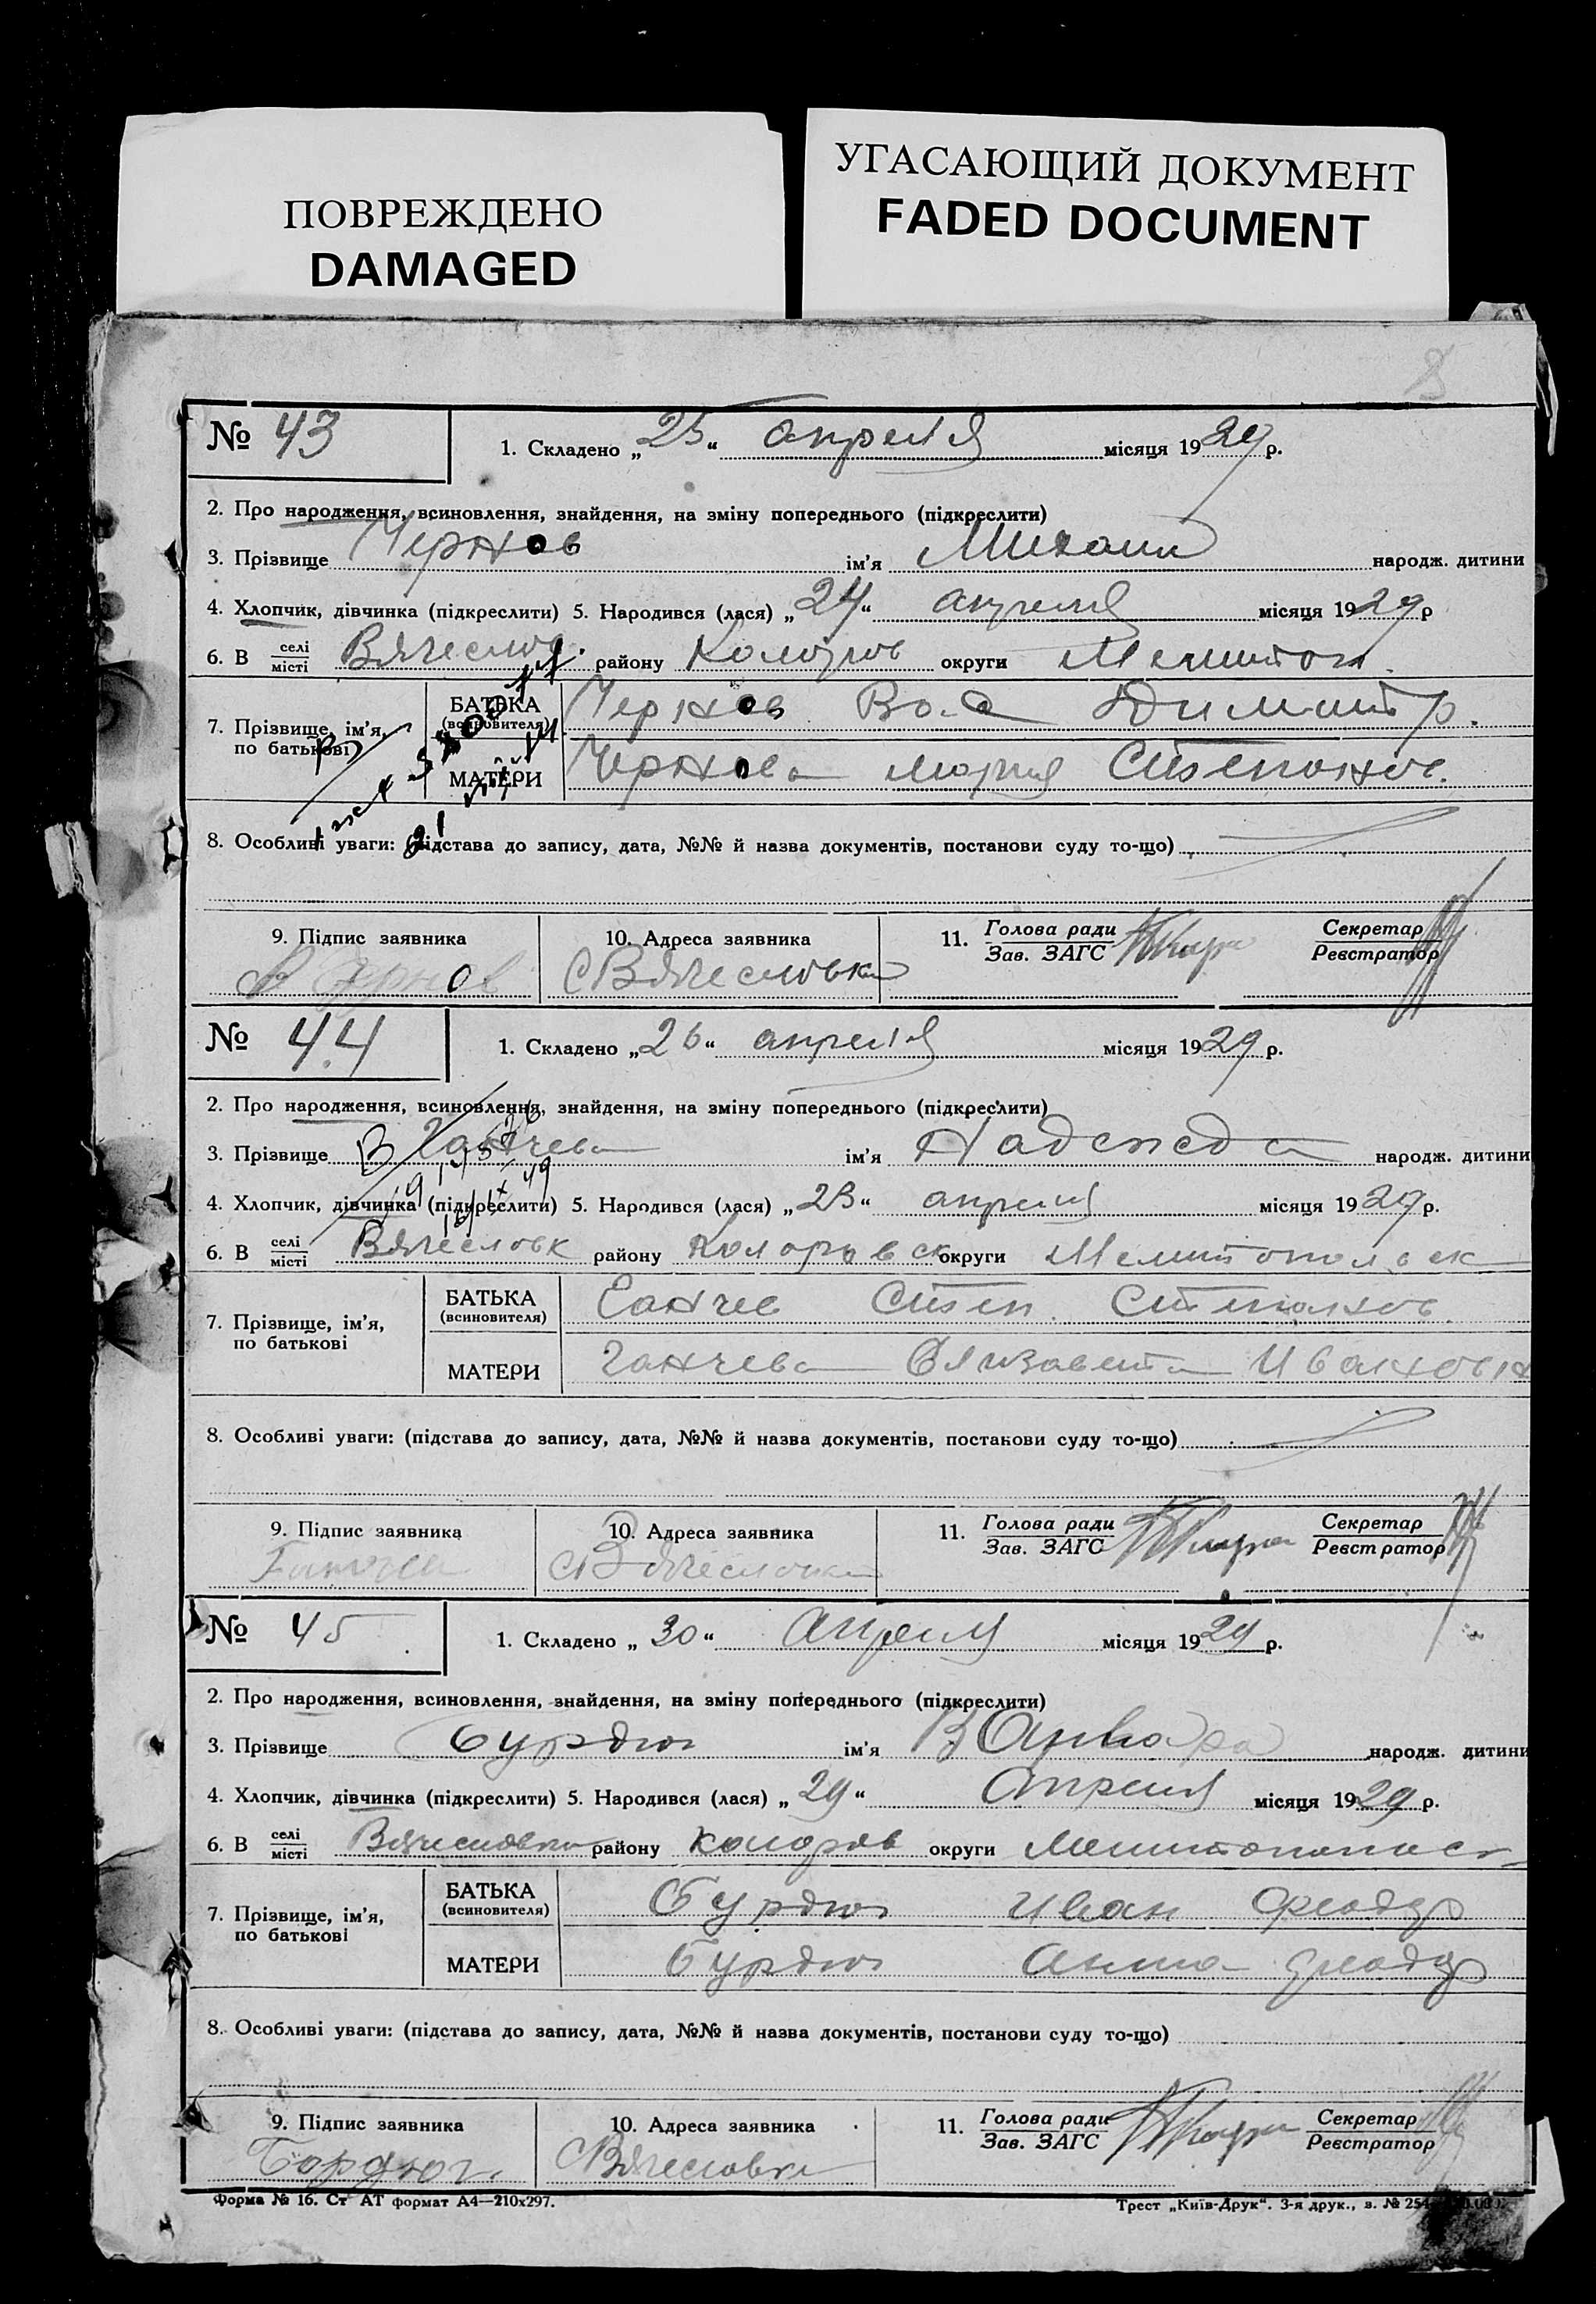 ПОВРЕЖДЕНО
DAMAGED
УГАСАЮЩИЙ ДОКУМЕНТ
FADED DOCUMENT
№ 43
1. Складено „25“ апреля місяця 1929 р.
2. Про народження, всиновлення, знайдення, на зміну попереднього (підкреслити)
3. Прізвище Чернов ім'я Михаил народж. дитини
4. Хлопчик, дівчинка (підкреслити) 5. Народився (лася) „24“ апреля місяця 1929 р
6. В селі місті Вячеслов. району Коларов округи Мелитоп.
7. Прізвище, ім'я, по батькові
БАТЬКА (всиновителя) Чернов Вас Димитр.
МАТЕРИ Чернова Мария Степанов.
8. Особливі уваги: (підстава до запису, дата, №№ й назва документів, постанови суду то-що)
9. Підпис заявника Чернов
10. Адреса заявника С Вячесловка
11. Голова ради Зав. ЗАГС
Секретар Реєстратор
№ 44
1. Складено „26“ апреля місяця 1929 р.
2. Про народження, всиновлення, знайдення, на зміну попереднього (підкреслити)
3. Прізвище Ганчева ім'я Надежда народж. дитини
4. Хлопчик, дівчинка (підкреслити) 5. Народився (лася) „23“ апреля місяця 1929 р.
6. В селі місті Вячесловк району Коларовск округи Мелитопольск
7. Прізвище, ім'я, по батькові
БАТЬКА (всиновителя) Ганчев Степ. Степанов.
МАТЕРИ Ганчева Елизавета Ивановн
8. Особливі уваги: (підстава до запису, дата, №№ й назва документів, постанови суду то-що)
9. Підпис заявника Ганчев
10. Адреса заявника С Вячесловка
11. Голова ради Зав. ЗАГС
Секретар Реєстратор
№ 45
1. Складено „30“ Апреля місяця 1929 р.
2. Про народження, всиновлення, знайдення, на зміну попереднього (підкреслити)
3. Прізвище Бурдюг ім'я Варвара народж. дитини
4. Хлопчик, дівчинка (підкреслити) 5. Народився (лася) „29“ Апреля місяця 1929 р.
6. В селі місті Вячесловка району Коларов округи Мелитопольс
7. Прізвище, ім'я, по батькові
БАТЬКА (всиновителя) Бурдюг Иван Феодор
МАТЕРИ Бурдюг Анна Феодор
8. Особливі уваги: (підстава до запису, дата, №№ й назва документів, постанови суду то-що)
9. Підпис заявника Бордюг.
10. Адреса заявника С Вячесловка
11. Голова ради Зав. ЗАГС
Секретар Реєстратор
Форма № 16. Ст АТ формат А4—210х297.
Трест „Київ-Друк“. 3-я друк., з. №